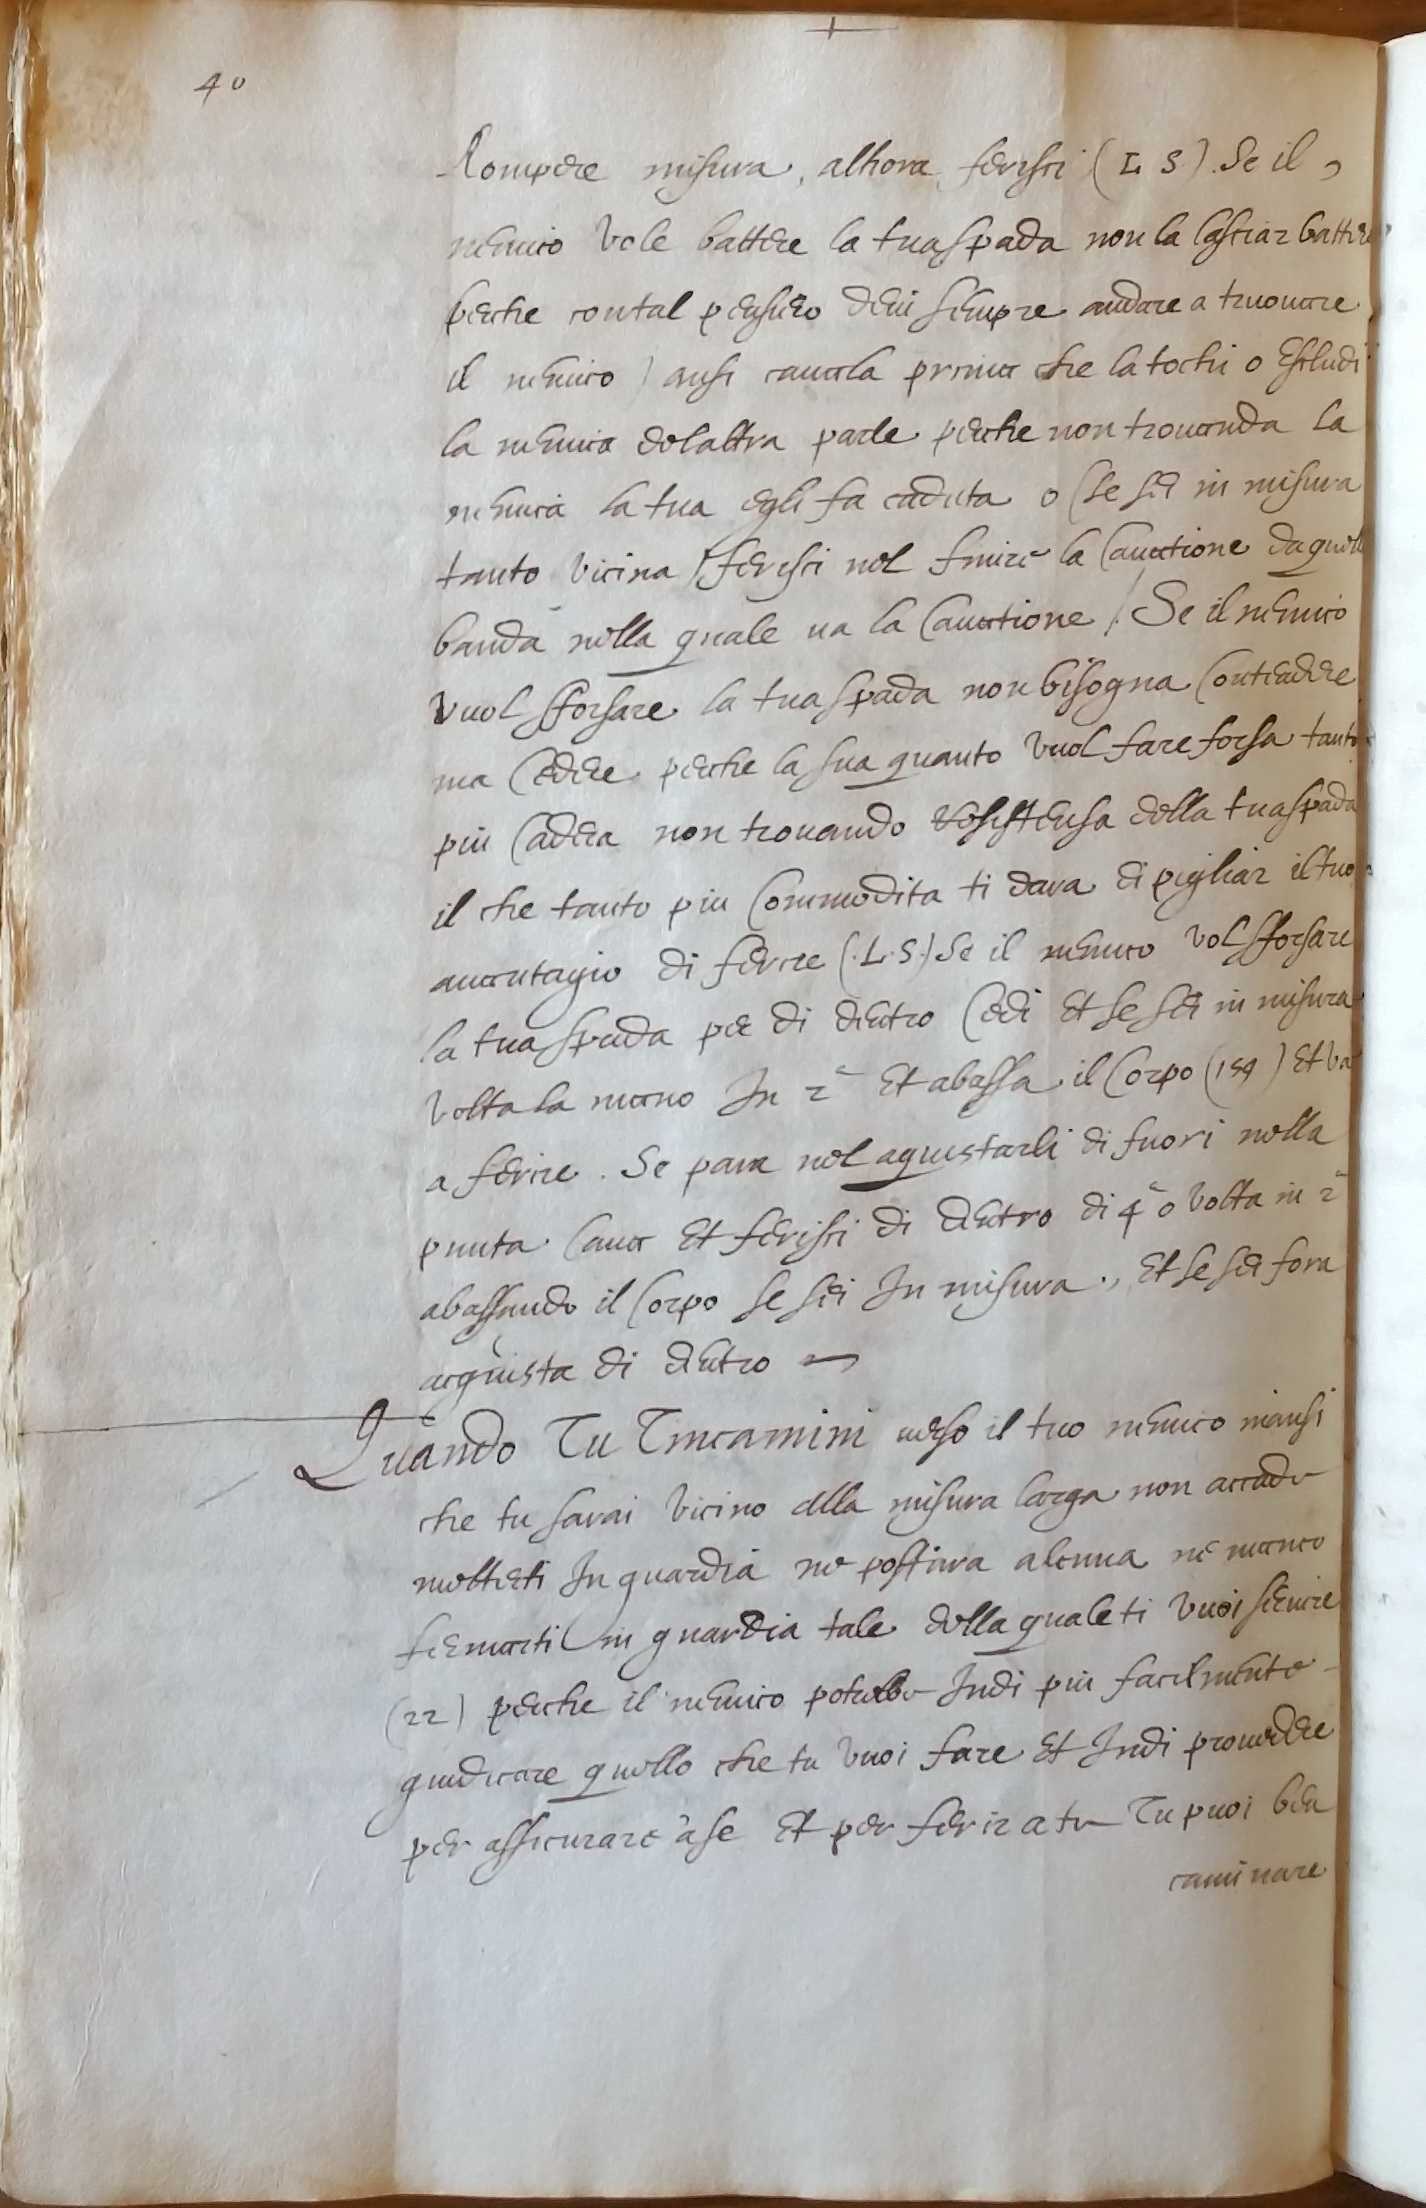 40
Rompere misura, alhora ferisci (L S). Se il
nemico vole battere la tua spada non la lasciar battere
perche con tal pensiero devi sempre andare a truovare
il nemico) ansi cavala prima che la tochi o escludi
la nemica delaltra parte perche non trovanda la
nemica la tua egli fa caduta o (se sei in misura
tanto vicina) ferisci nel finire la cavatione da quella
banda nella quale va la cavatione /. Se il nemico
vuol sforsare la tua spada non bisogna contendere
ma cedere perche la sua quanto vuol fare forsa tanto
piu cadera non trovando resistensa della tua spada
il che tanto piu commodita ti dara di pigliar il tuo
avantagio di ferire (.L.S.) Se il nemico vol sforsare
la tua spada per di dentro cedi et se sei in misura
volta la mano In 2ª et abassa il corpo (154) et va
a ferire. Se para nel aquistarli di fuori nella
punta cava et ferisci di dentro di 4ª o volta in 2ª
abassando il corpo se sei In misura., et se sei fora
acquista di dentro
Quando Tu T'incamini verso il tuo nemico inansi
che tu sarai vicino alla misura larga non accade
metterti In guardia ne positura alcuna ne manco
fermarti in guardia tale della quale ti vuoi servire
(22) perche il nemico potrebbe Indi piu facilmente
giudicare quello che tu vuoi fare et Indi provedere
per assicurare a se et per ferir a te Tu puoi ben
caminare